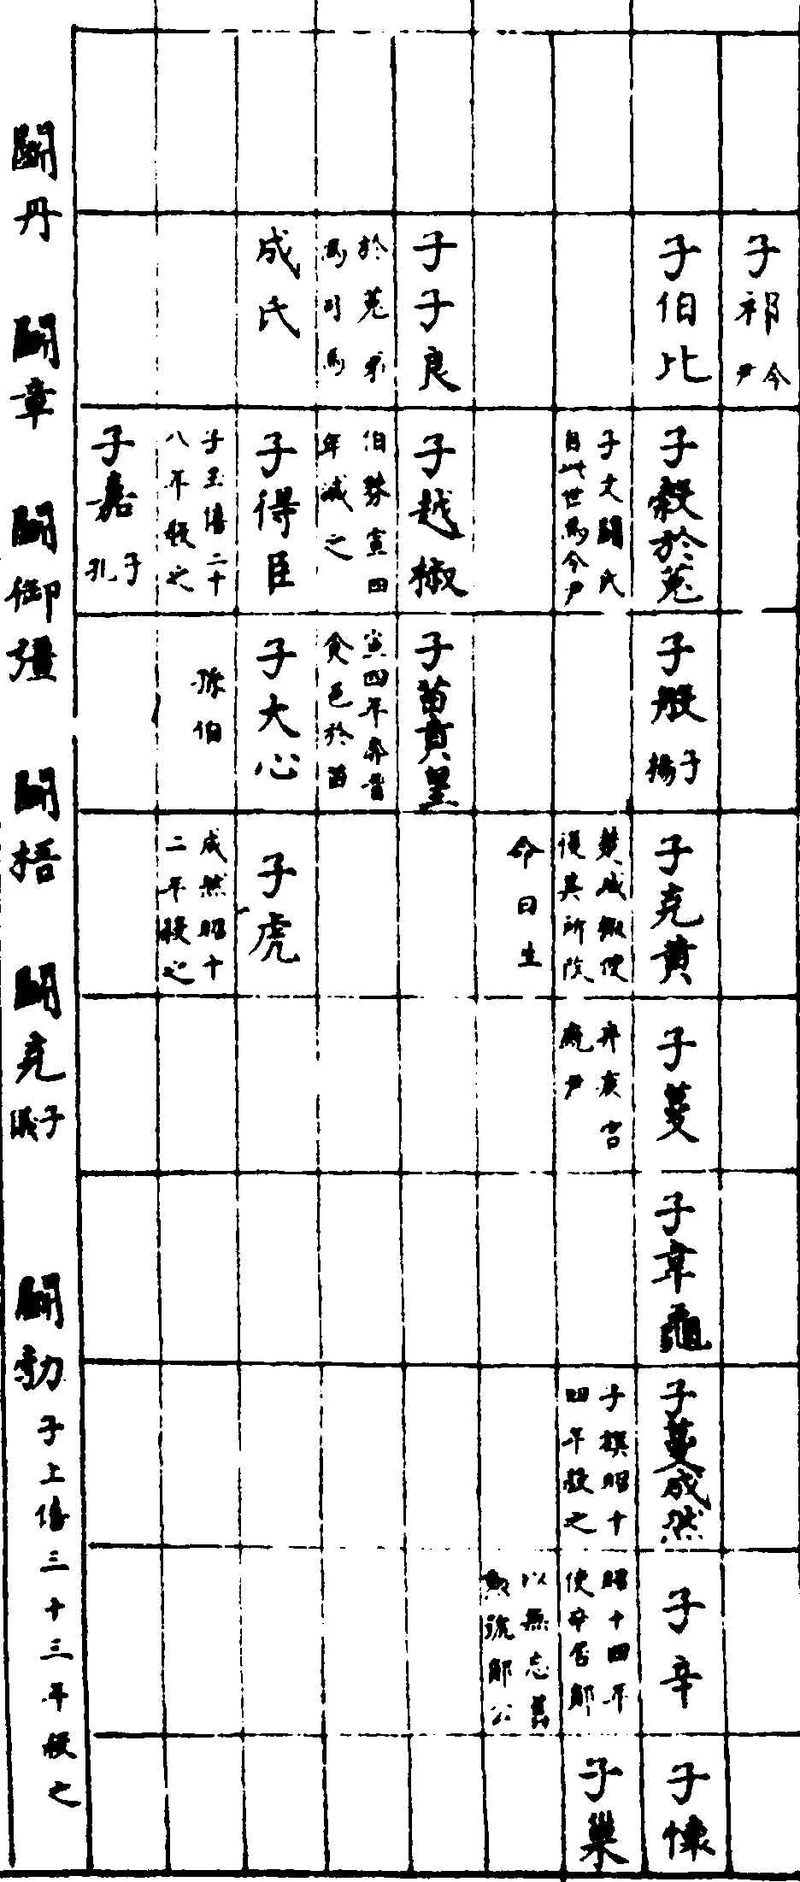 子祁令尹
子伯比
子穀於菟
子文鬭氏
自此世爲令尹
子般子揚
子克黄
楚成
復其所改
命曰生
子蔓
尹
子韋龜
子蔓成然
子旗昭十
四年殺之
子辛
昭十四年
使辛居鄖
以無忘舊
勲號鄖公
子懷
子巢
子子良
於菟弟
爲司馬
子越椒
伯棼宣四
年滅之
子苗賁皇
宣四年奔晉
食邑於苗
成氏
子得臣
子玉僖二十
八年殺之
子大心
孫伯
子虎
成熊昭十
二年殺之
子嘉子孔
鬭丹
鬭章
鬭御彊
鬭梧
鬭克子儀
鬭勃子上僖三十三年殺之